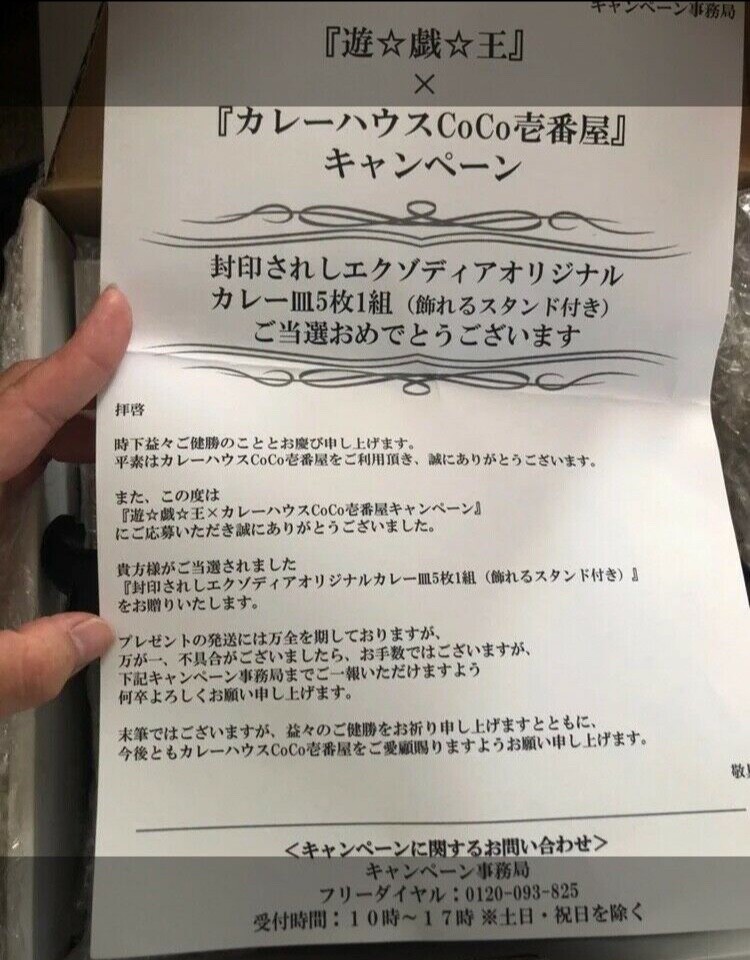 キャンペーン事務局
『遊☆戯☆王』
×
『カレーハウスCoCo壱番屋』
キャンペーン
封印されしエクゾディアオリジナル
カレー皿5枚1組（飾れるスタンド付き）
ご当選おめでとうございます
拝啓
時下益々ご健勝のこととお慶び申し上げます。
平素はカレーハウスCoCo壱番屋をご利用頂き、誠にありがとうございます。
また、この度は
『遊☆戯☆王×カレーハウスCoCo壱番屋キャンペーン』
にご応募いただき誠にありがとうございました。
貴方様がご当選されました
『封印されしエクゾディアオリジナルカレー皿5枚1組（飾れるスタンド付き）』
をお贈りいたします。
プレゼントの発送には万全を期しておりますが、
万が一、不具合がございましたら、お手数ではございますが、
下記キャンペーン事務局までご一報いただけますよう
何卒よろしくお願い申し上げます。
末筆ではございますが、益々のご健勝をお祈り申し上げますとともに、
今後ともカレーハウスCoCo壱番屋をご愛顧賜りますようお願い申し上げます。
敬
＜キャンペーンに関するお問い合わせ＞
キャンペーン事務局
フリーダイヤル：0120-093-825
受付時間：１０時～１７時 ※土日・祝日を除く